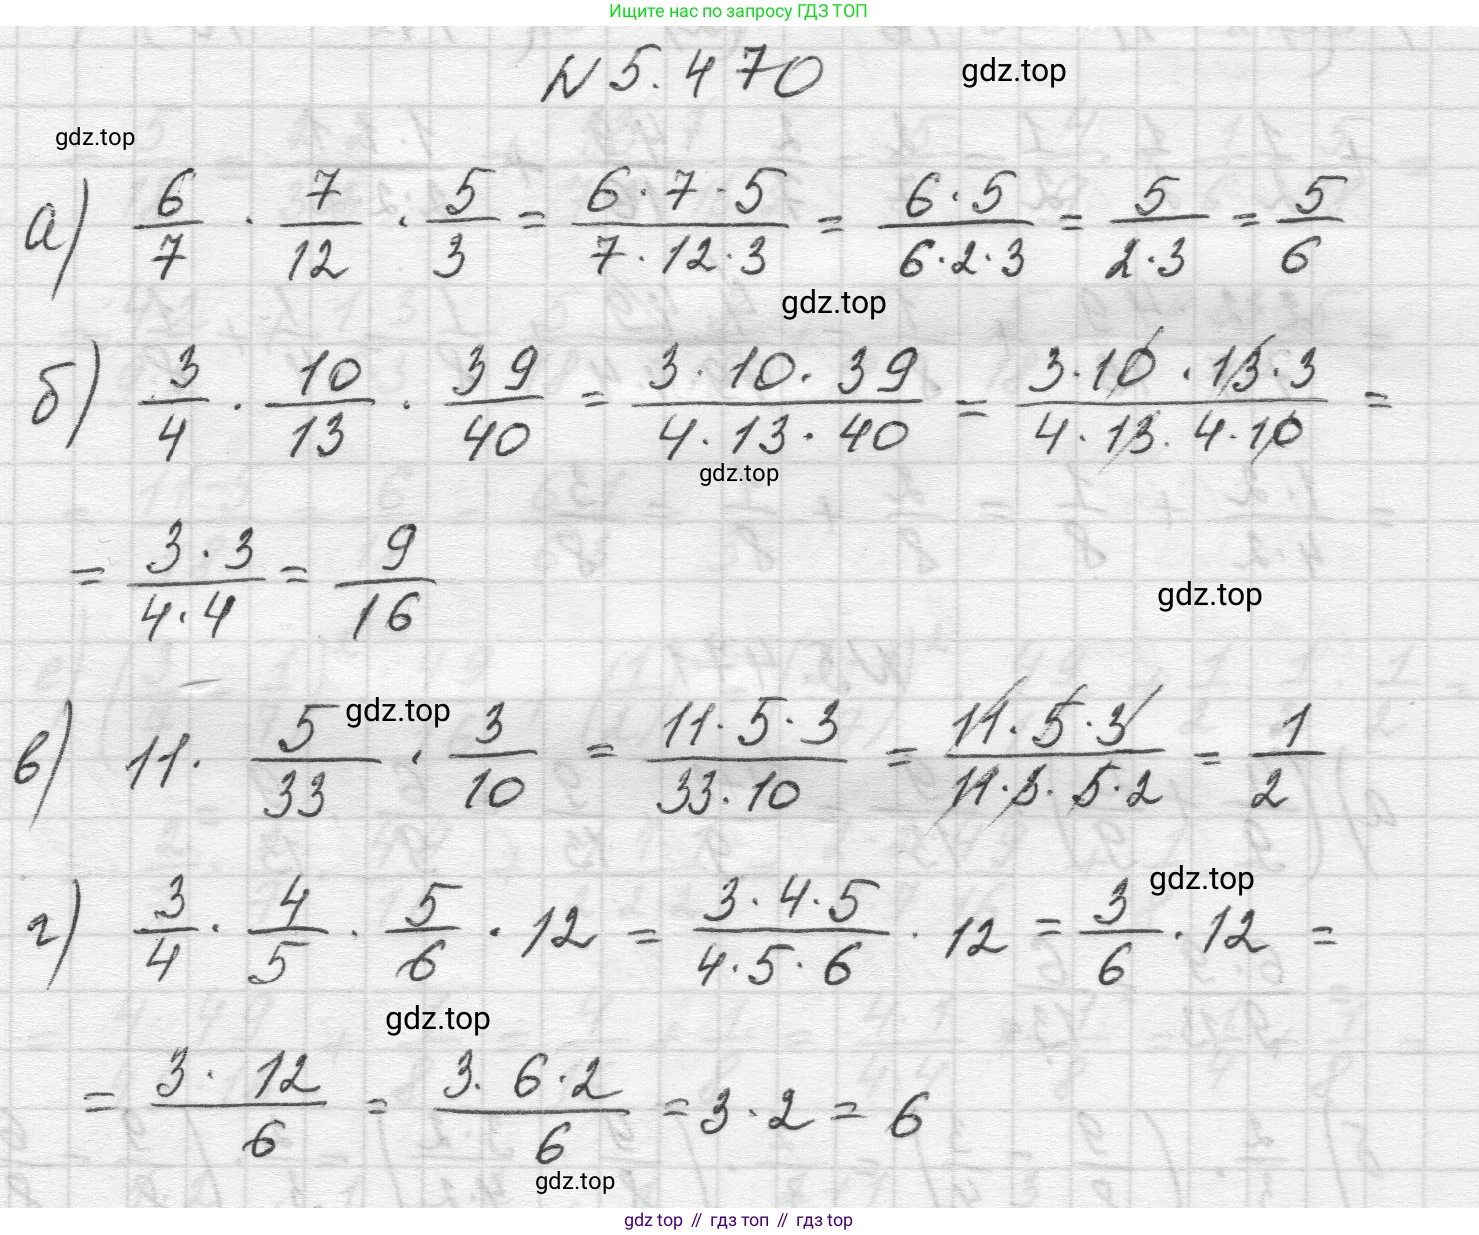 Ищите нас по запросу ГДЗ ТОП
N 5.470
gdz.top
gdz.top
а) 6/7 · 7/12 · 5/3 = 6·7·5/7·12·3 = 6·5/6·2·3 = 5/2·3 = 5/6
gdz.top
б) 3/4 · 10/13 · 39/40 = 3·10·39/4·13·40 = 3·10·13·3/4·13·4·10 =
gdz.top
= 3·3/4·4 = 9/16
gdz.top
gdz.top
в) 11 · 5/33 · 3/10 = 11·5·3/33·10 = 11·5·3/11·3·5·2 = 1/2
gdz.top
г) 3/4 · 4/5 · 5/6 · 12 = 3·4·5/4·5·6 · 12 = 3/6 · 12 =
gdz.top
= 3·12/6 = 3·6·2/6 = 3·2 = 6
gdz.top
gdz top // гдз топ // gdz top